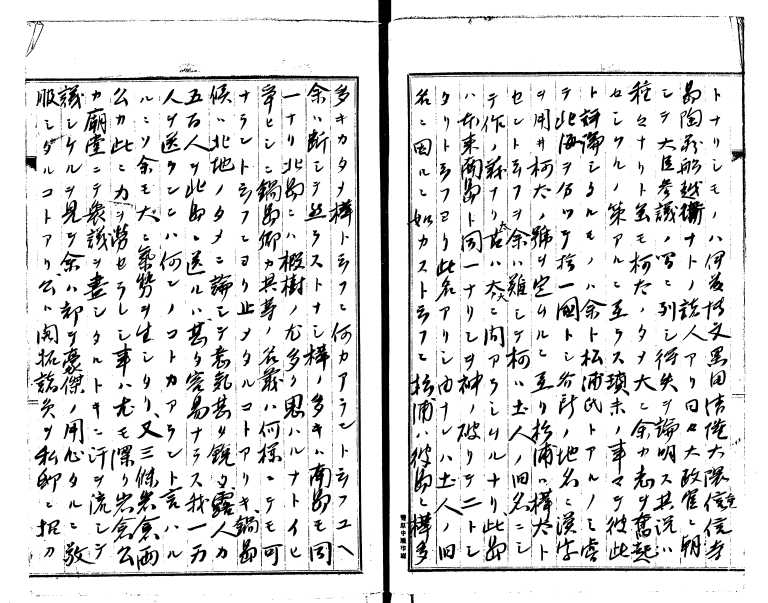 トナリシモノハ伊藤博文黒田清隆大隈信寺
島陶蔵船越衛ナトノ諸人アリ日々大政官ニ朝
シテ大臣参議ノ席ニ列シ得失ヲ論明ス其説ハ
種々ナリト雖モ柯太ノタメ大ニ余カ志ヲ奮起
センツルノ策アルニ至ラス瑣末ノ事々テ彼此
ト評論シタルモノハ余ト松浦氏トアルノミ
テ北海ヲ分ツテ拾一国トシ各所ノ地名ニ漢字
ヲ用井柯太ノ号ヲ定ムルニ至リ松浦ハ樺太ト
セントキフヲ余ハ難シテ柯ハ土人ノ旧名ニシ
テ作ノ
ハ本来両島ト同一ナリシヲ神ノ破リテ二トシ
タリト云フヨリ此名アリシ由ナレハ土人ノ旧
名ニ因ルニ如カスト云フニ松浦ハ彼島ニ樺多
多キカタメ樺ト云フニ何カアラント云フユヘ
余ハ断シテ然ラストナシ樺ノ多キハ南島モ同
一ナリ北島ニハ椴樹ノ尤多ク思ハルナトイヒ
争ヒシニ鍋島卿カ其等ノ名義ハ何様ニテモ可
ナラント云フニヨリ止メタルコトアリキ鍋島
候ハ北地ノタメニ論シテ意気甚タ鋭ク露人カ
五百人ヲ此島ニ送ルハ甚タ容易ナラス我一万
人ヲ送ランニハ何ンノコトカアラント言ハル
ルニソ余モ大ニ気勢ヲ生シタリ又三條岩倉両
公カ此ニ力ヲ労セラレシ事ハ尤モ深ク岩倉公
カ廟堂ニテ衆議ヲ尽シタルトキニ汗ヲ流シテ
議シケルヲ見テ余ハ却テ豪傑ノ用心タルニ敬
服シタルコトアリ公ハ開拓諸員ヲ私邸ニ招カ